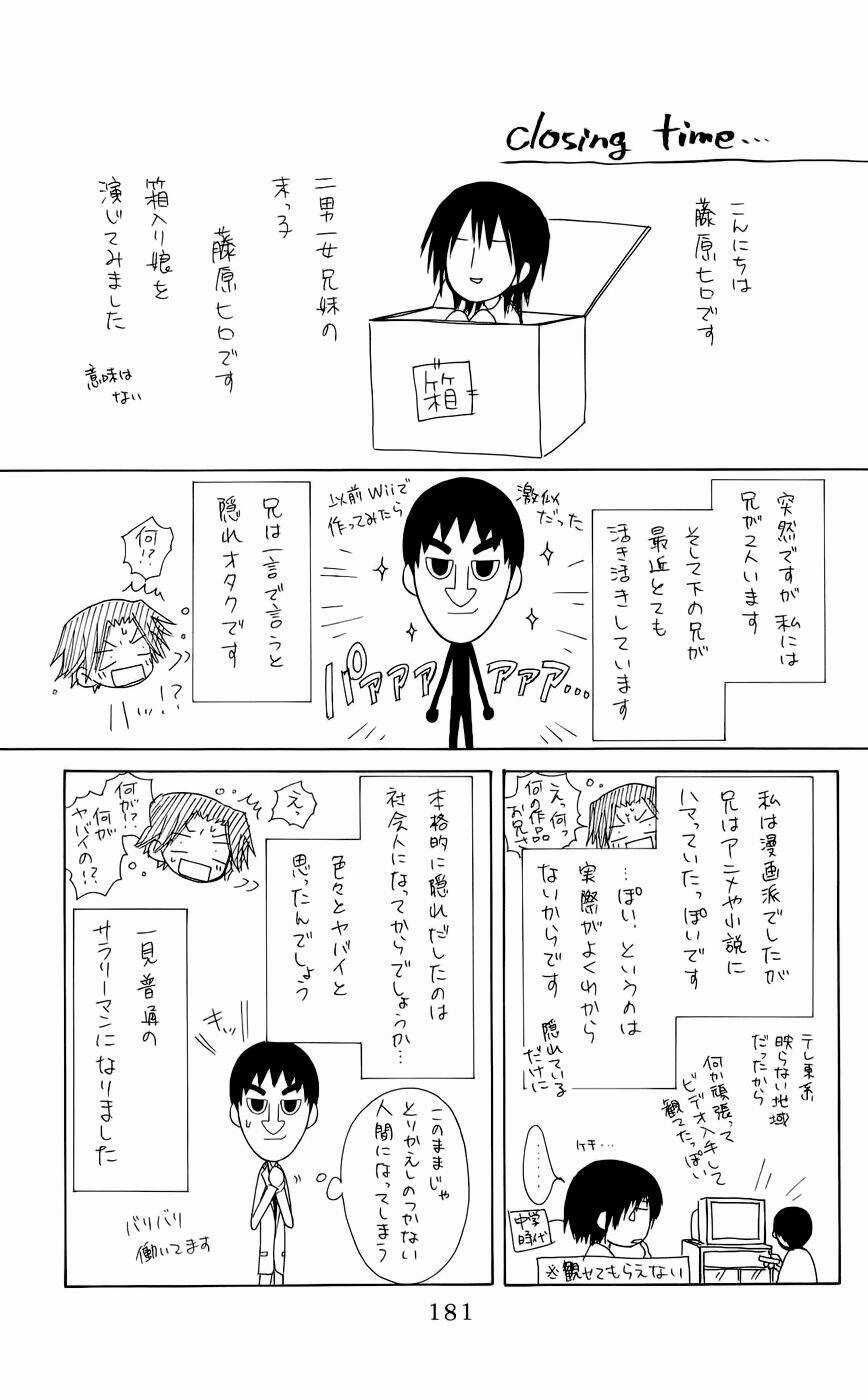 closing time…
こんにちは
藤原ヒロです
箱
二男一女兄妹の
末っ子
藤原ヒロです
箱入り娘を
演じてみました
意味は
ない
突然ですが私には
兄が2人います
そして下の兄が
最近とても
活き活きしています
激似
だった
以前Wiiで
作ってみたら
パァァァァァァ…
兄は一言で言うと
隠れオタクです
何!?
ハッ…!?
私は漫画派でしたが
兄はアニメや小説に
ハマっていたっぽいです
えっ何っ
何の作品
お兄さ
…ぽい、というのは
実際がよくわから
ないからです
隠れている
だけに
テレ東系
映らない地域
だったから
何か頑張って
ビデオ入手して
観てたっぽい
ケチ…
………
中学
時代
※観せてもらえない
本格的に隠れだしたのは
社会人になってからでしょうか…
色々とヤバイと
思ったんでしょう
えっ
何が!?
何が
ヤバイの!?
このままじゃ
とりかえしのつかない
人間になってしまう
キッ…
一見普通の
サラリーマンになりました
バリバリ
働いてます
181